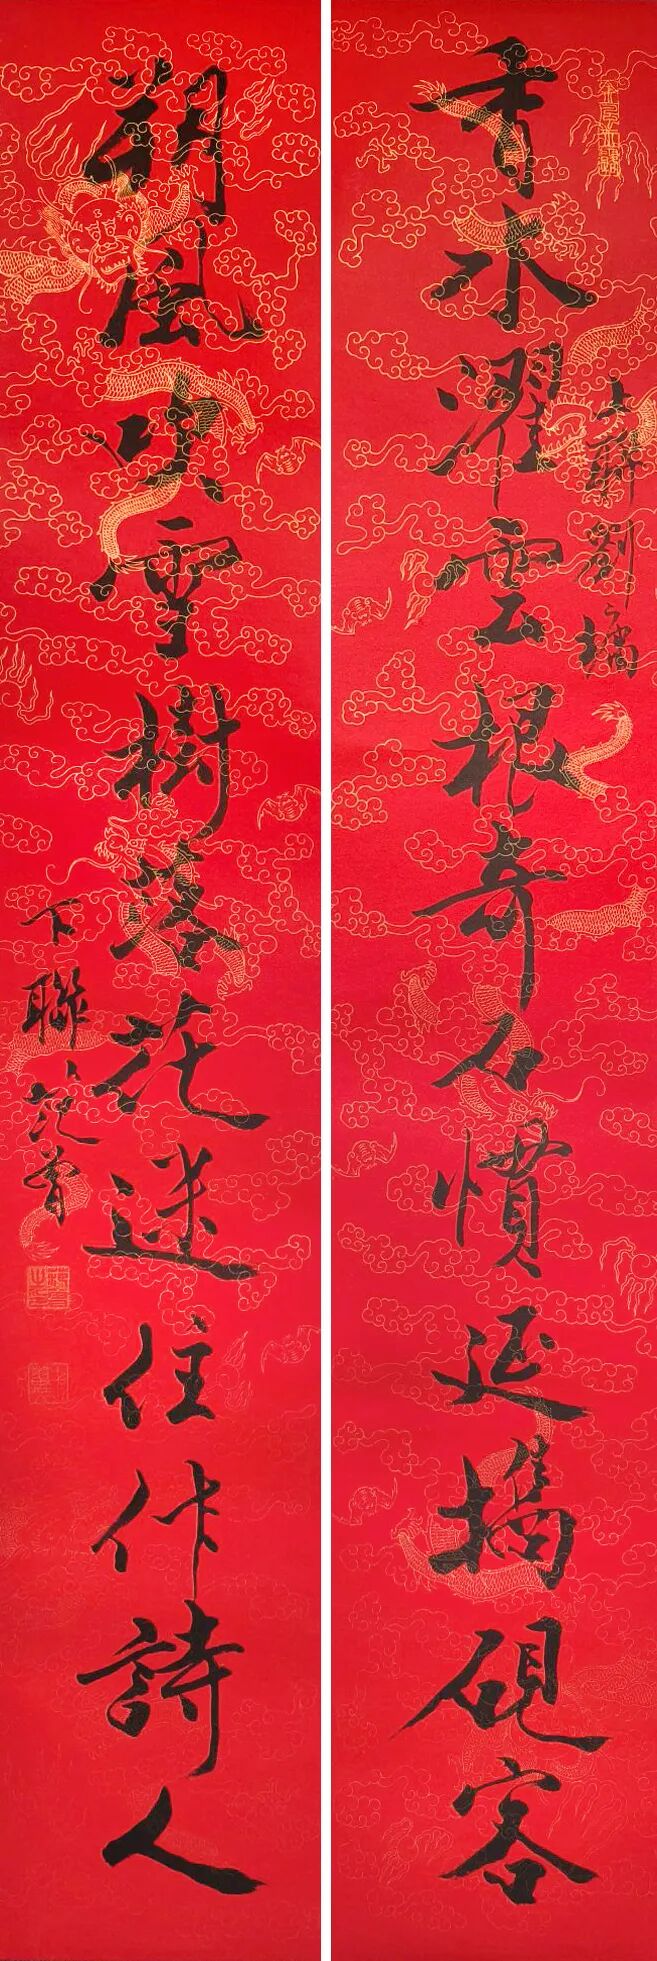 香水濯雲根奇石慣延攜硯客
上聯劉之墉
朔風吹雪樹落花迷住作詩人
下聯范曾